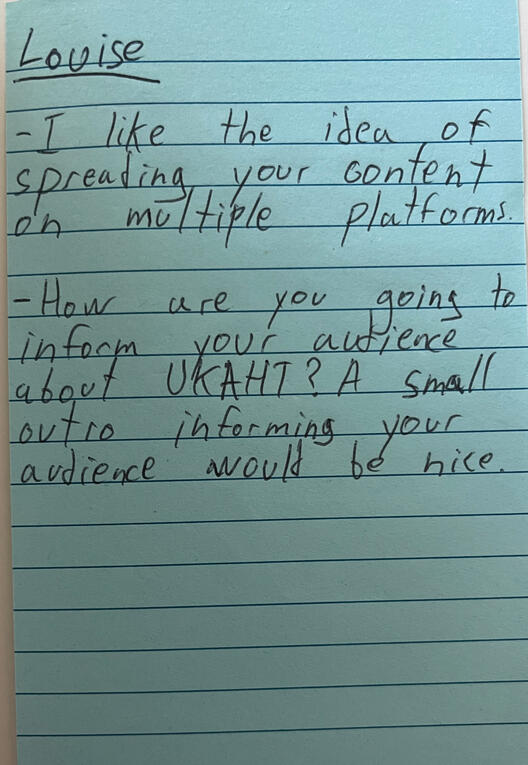 Louise
- I like the idea of
spreading your content
on multiple platforms.
- How are you going to
inform your audience
about UKAHT? A small
outro informing your
audience would be nice.